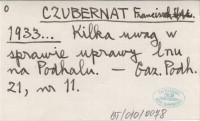 CZUBERNAT Franciszek
1933... Kilka uwag w
sprawie uprawy lnu
na Podhalu. — Gaz. Podh.
21, nr 11.
BJ/010/0078